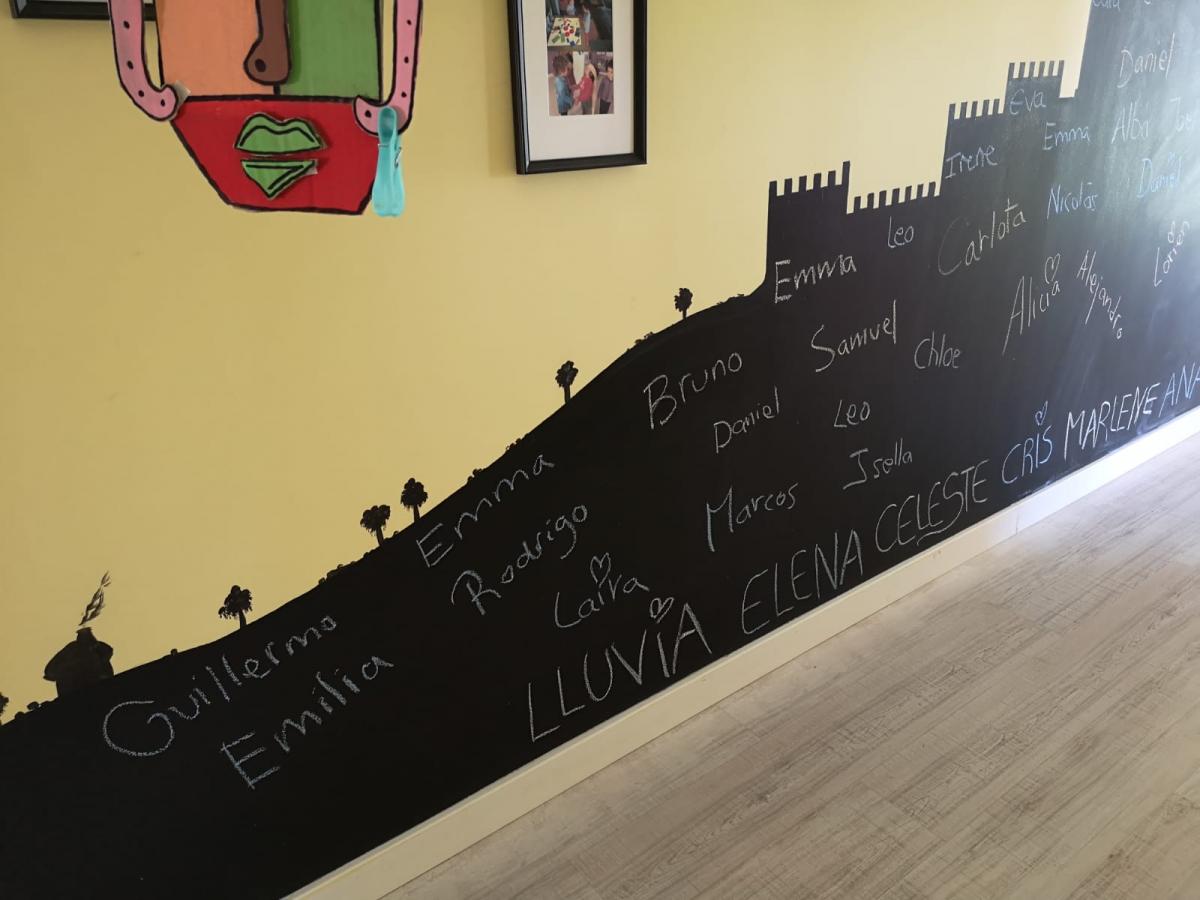 Daniel
Eva
Irene
Emma
Alba
Leo
Carlota
Nicolás
Daniel
Emma
Alicia
Alejandro
Bruno
Samuel
Chloe
Daniel
Leo
Emma
Rodrigo
Marcos
Isella
Laira
Guillermo
Emilia
LLUVIA ELENA CELESTE CRIS MARLENE ANA